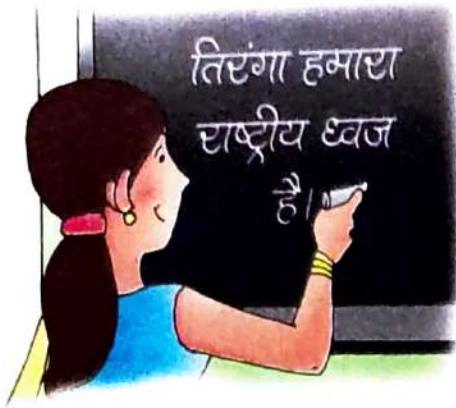 तिरंगा हमारा
राष्ट्रीय ध्वज
है।